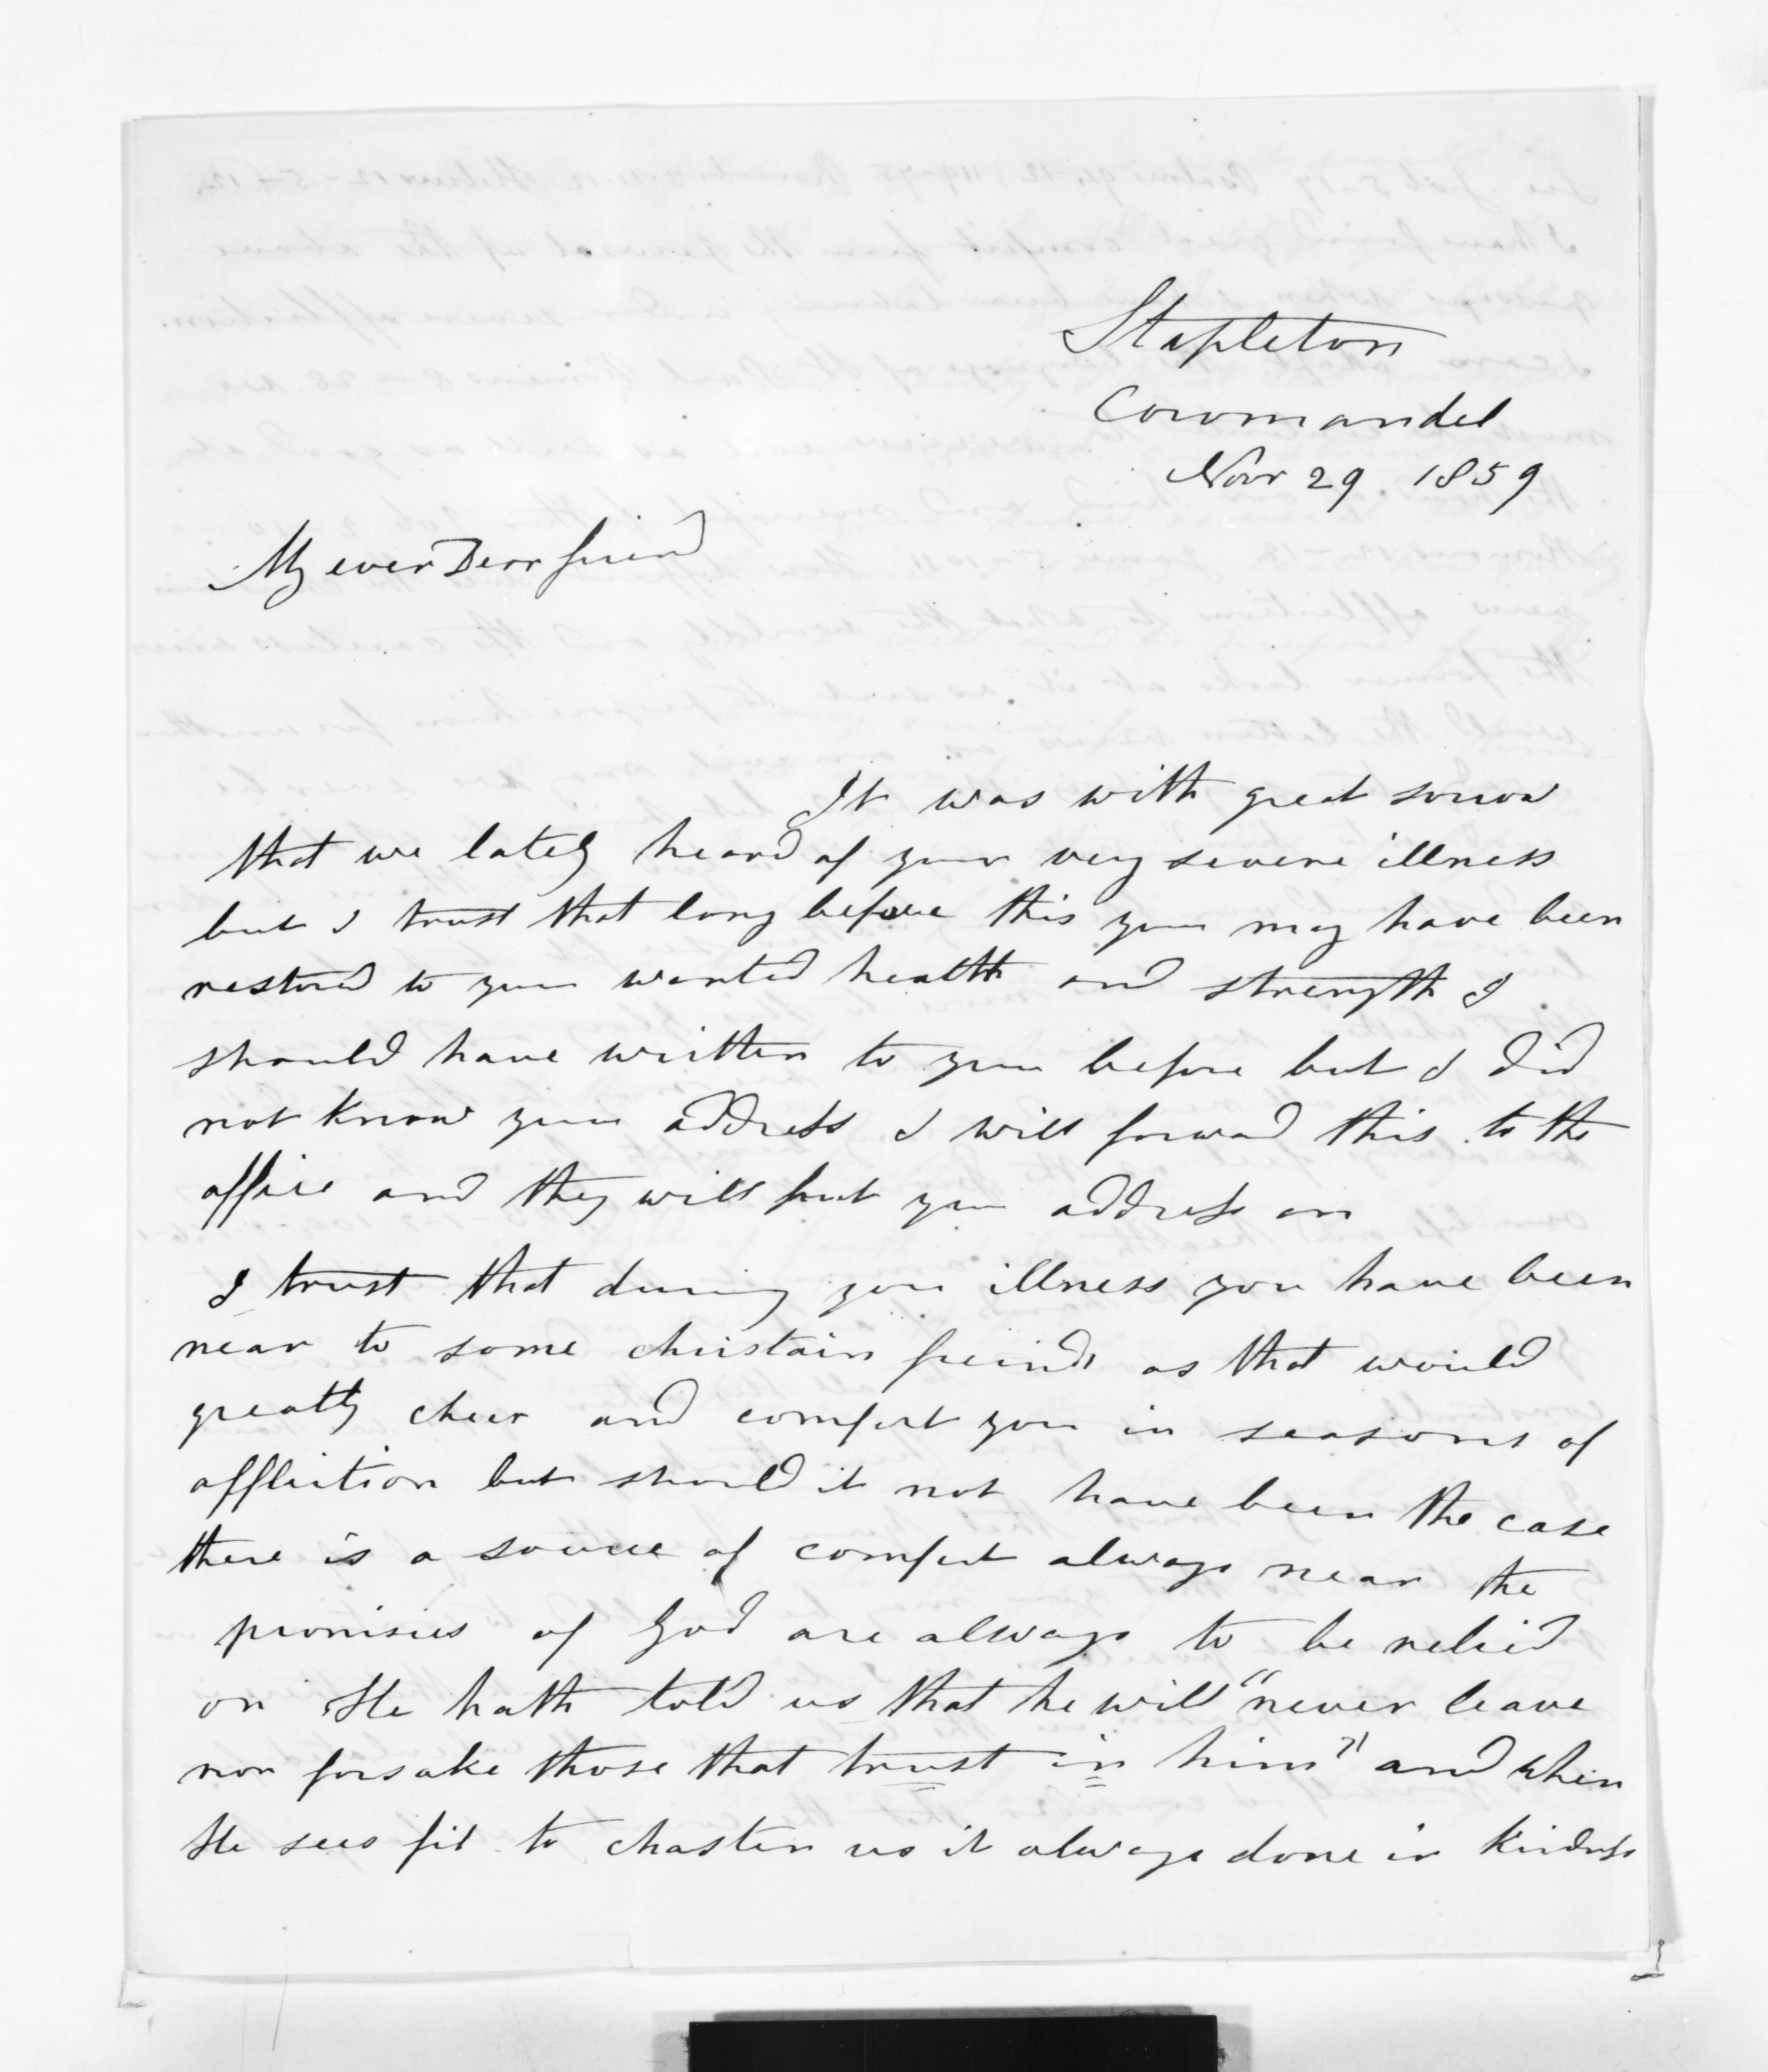 Stapleton
Coromandel
Novr 29 1859
My ever Dear friend
It was with great sorrow
that we lately heard of your very severe illness
but I trust that long before this you may have been
restored to your wonted health and strength I
should have written to you before but I did
not know your address I will forward this to the
office and they will put your address on
I trust that during your illness you have been
near to some christain freinds as that would
greatly cheer and comfort you in seasons of
affliction but should it not have been the case
there is a source of comfort always near the
promisies of God are always to be relied
on He hath told us that he will "never leave
nor forsake those that trust in him" and when
He sees fit to chasten us it always done in kindness